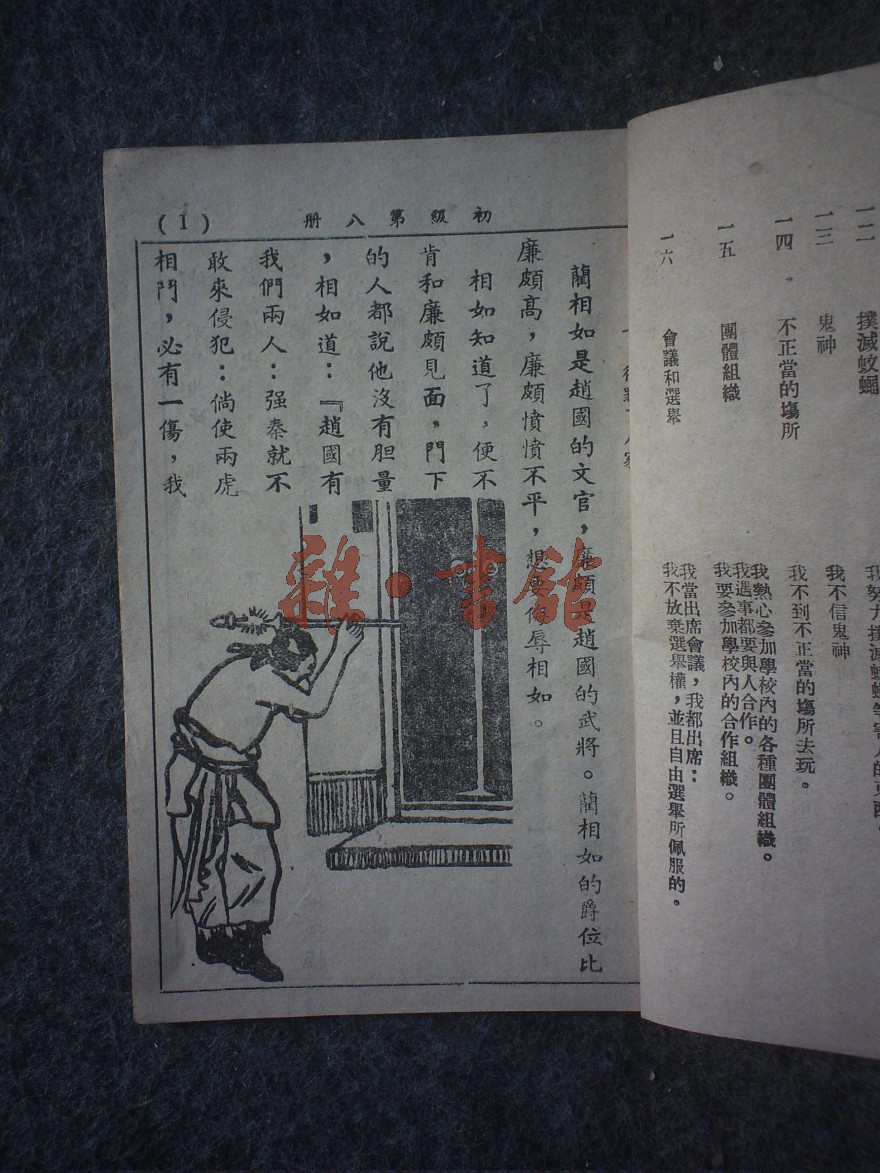 一二 撲滅蚊蠅
一三 鬼神 我不信鬼神
一四 不正當的場所 我不到不正當的場所去玩。
一五 團體組織 我熱心參加學校內的各種團體組織。
我遇事都要與人合作。
我要參加學校內的合作組織。
一六 會議和選舉 我當出席會議,我都出席:
我不放棄選舉權,並且自由選舉所佩服的。
初級第八册
(1)
藺相如是趙國的文官,廉頗是趙國的武將。藺相如的爵位比
廉頗高,廉頗憤憤不平,想要侮辱相如。
相如知道了,便不
肯和廉頗見面,門下
的人都說他沒有胆量
,相如道:『趙國有
我們兩人:强秦就不
敢來侵犯:倘使兩虎
相鬥,必有一傷,我
雜·書館